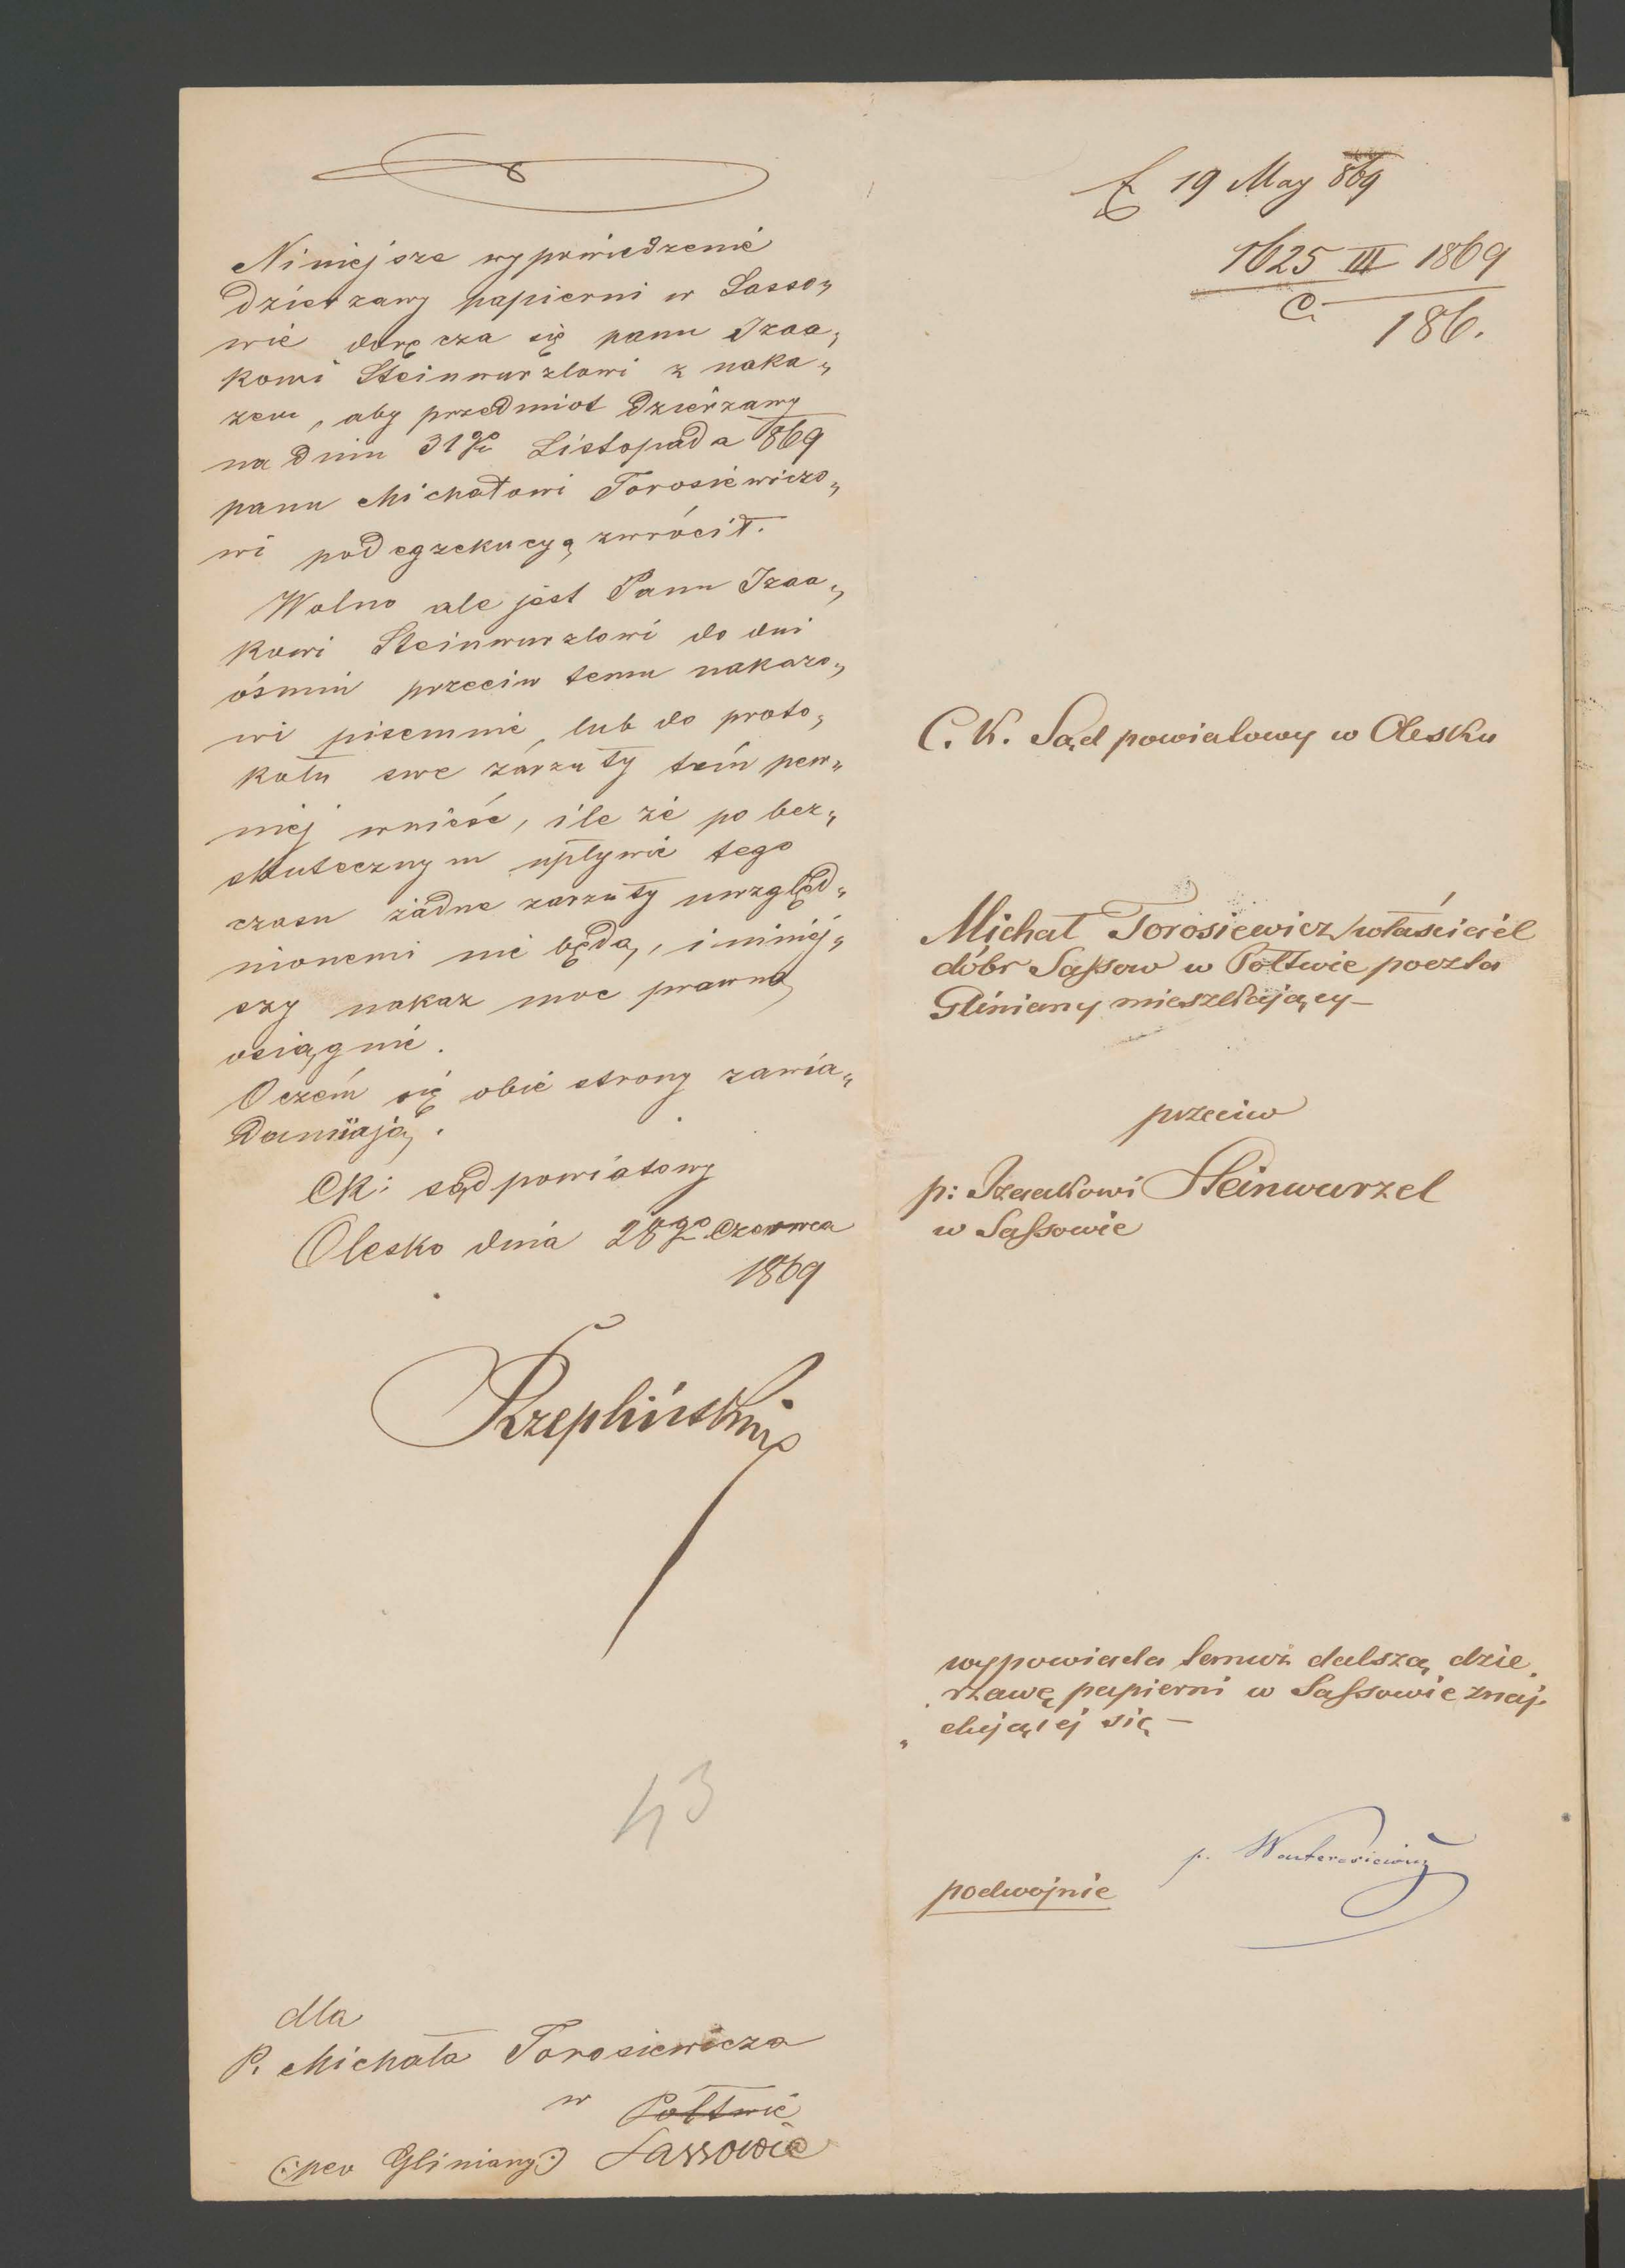 Niniejsze wypowiedzenie
dzierzawy papierni w Sasso„
wie doręcza się panu Izaa„
kowi Steinwurzlowi z naka„
zem, aby przedmiot dzierzawy
na dniu 31go Listopada 869
panu Michałowi Torosiewiczo„
wi pod egzekucyą zwrócił.
Wolno ale jest Panu Izaa„
kowi Steinwurzlowi do dni
ośmiu przeciw temu nakazo„
wi pisemnie, lub do proto„
kołu swe zarzuty tem pew„
niej wnieść, ile że po bez„
skutecznym upływie tego
czasu żadne zarzuty uwzględ„
nionemi nie będą, i niniej„
szy nakaz moc prawną
osiągnie.
Oczem się obie strony zawia„
damiają.
CK: sąd powiatowy
Olesko dnia 28go Czerwca
1869
Rzepliński
43
dla
P. Michała Torosiewicza
w Połtwie
(:per Gliniany:) Sassowie
19 May 869
1625 III 1869
C. 186.
C. K. Sąd powiatowy w Olesku
Michał Torosiewicz właściciel
dóbr Saſsow w Połtwie poczta
Gliniany mieszkający —
przeciw
p: Izaakowi Steinwurzel
w Saſsowie
wypowiada temuż dalszą dzie
rzawę papierni w Saſsowie znaj
dującej się —
podwojnie